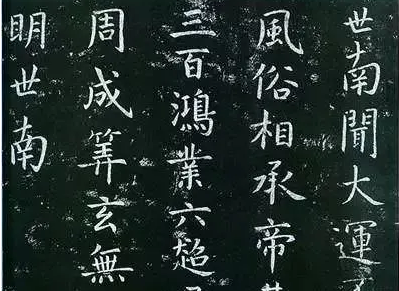 世南聞大運
風俗相承帝
三百鴻業六超
周成筭玄無
明世南